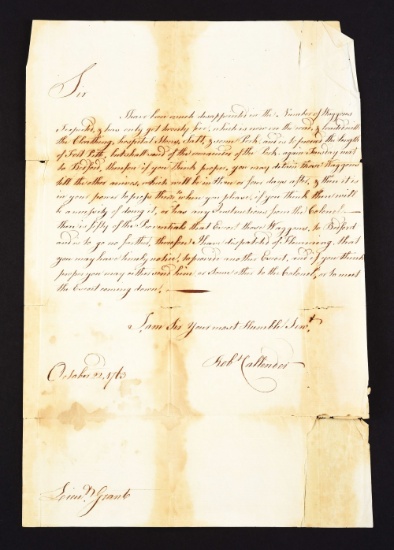 Sir
I have been much disappointed in the Number of Waggons
I expected, & can only get twenty five, which is now on the road, & loaded with
the Cloathing, hospital Stores, Salt, & some Pork, and is to proceed the length
of Fort Pitt, but what and if the remainder of the Pork again Sunday next
to Bedford, therefore if you think proper, you may detain those Waggons
till the other arrives, which will be in three or four days after, & then it is
in your power to press those when you please, if you think there will
be a necessity of doing it, or have any Instructions from the Colonel
there is fifty of the Provincials that Escort those Waggons, to Bedford
and is to go no further, therefore I have dispatched Flemming, that
you may have timely notice, to provide another Escort, and if you think
proper you may either send him or some other to the Colonel, or to meet
the Escort coming down.
I am Sir Your most Humble Servt
Robt Callender
October 22, 1763
Lieut Grant